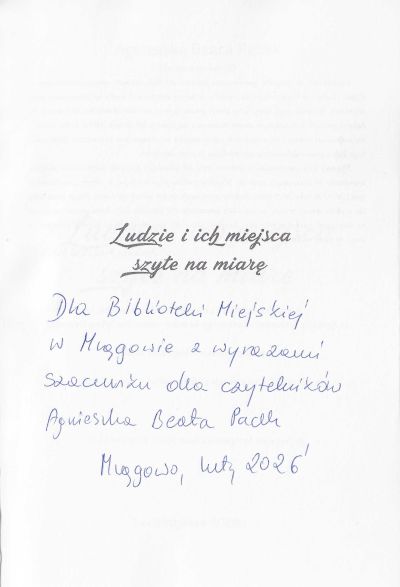 Ludzie i ich miejsca
szyte na miarę
Dla Biblioteki Miejskiej
w Mrągowie z wyrazami
szacunku dla czytelników
Agnieszka Beata Pacek
Mrągowo, luty 2026'